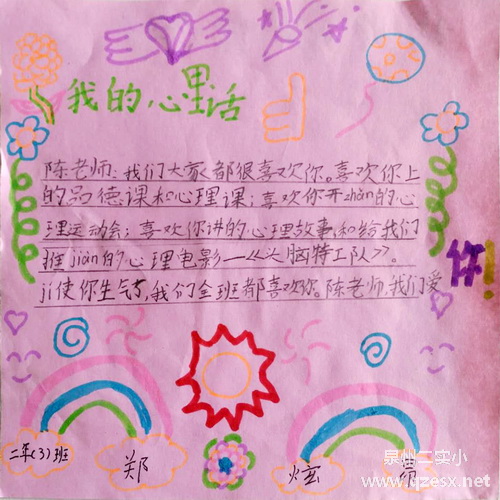 我的心里话
陈老师：我们大家都很喜欢你。喜欢你上
的品德课和心理课；喜欢你开zhǎn的心
理运动会；喜欢你讲的心理故事和给我们
推jiàn的心理电影—《头脑特工队》。
jí使你生气，我们全班都喜欢你。陈老师，我们爱
你！
二年(3)班
郑
炫
泉州二实小
www.qzesx.net